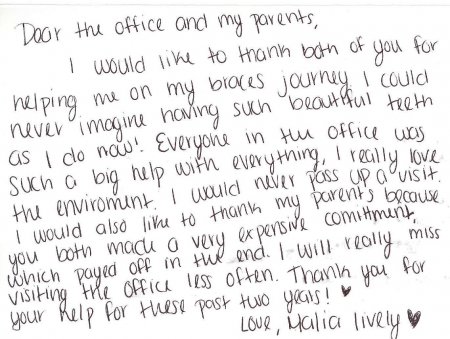 Dear the office and my parents,
I would like to thank both of you for
helping me on my braces journey. I could
never imagine having such beautiful teeth
as I do now! Everyone in the office was
such a big help with everything, I really love
the enviroment. I would never pass up a visit.
I would also like to thank my parents because
you both made a very expensive comittment,
which payed off in the end. I will really miss
visiting the office less often. Thank you for
your help for these past two years! ♥
Love, Malia lively ♥